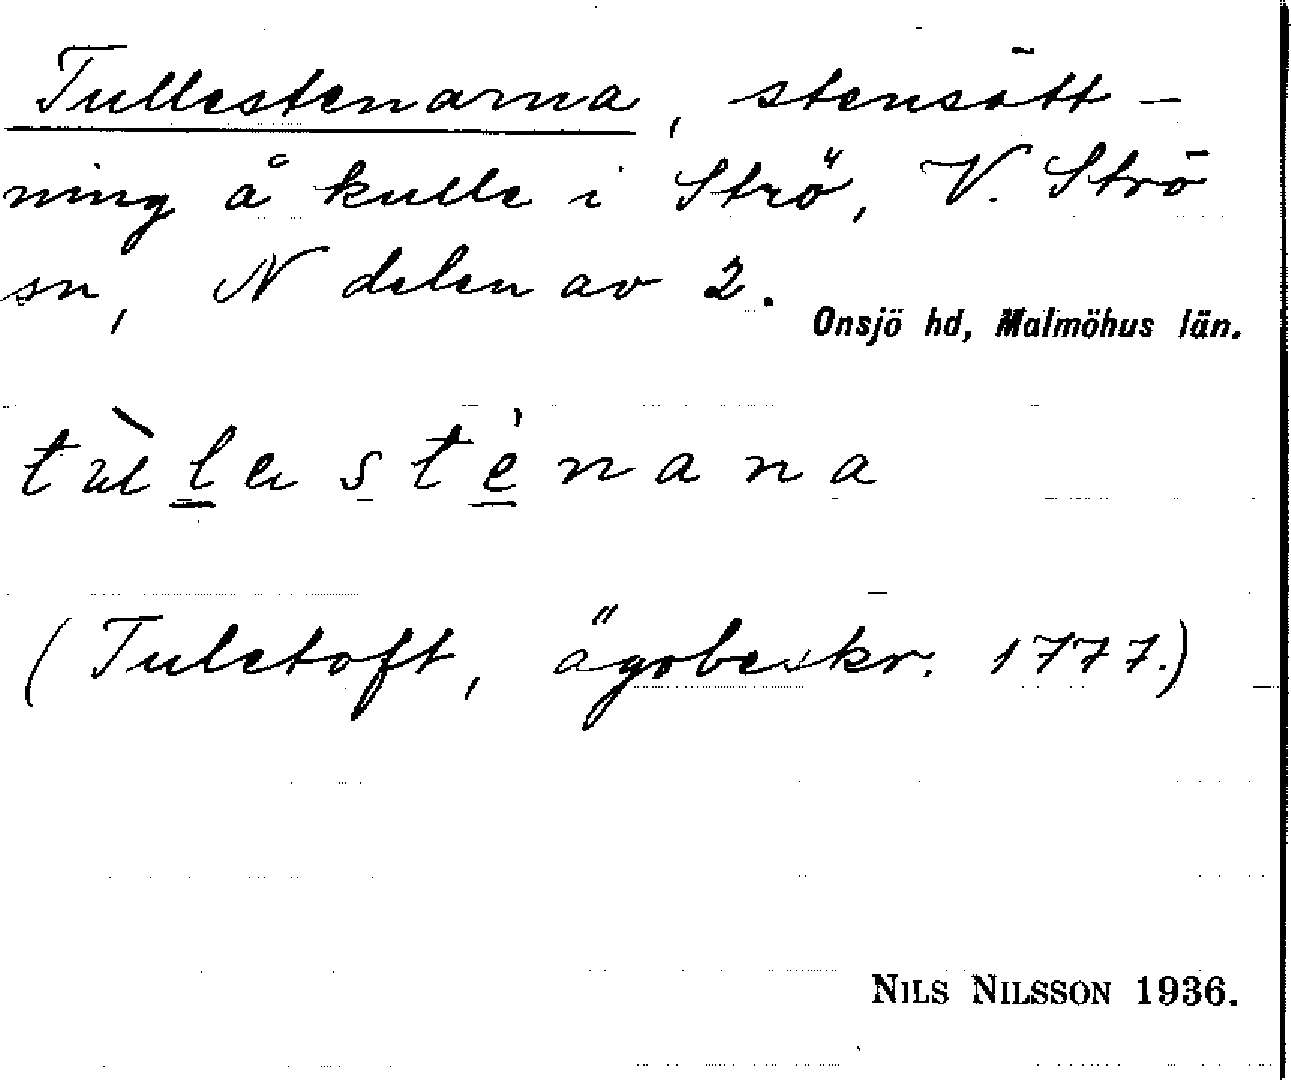 Tullestenarna, stensätt-
ning å kulle i Strö, V. Strö
sn, N delen av 2.
Onsjö hd, Malmöhus län.
tùlesténana
(Tuletoft, ägobeskr. 1777.)
NILS NILSSON 1936.